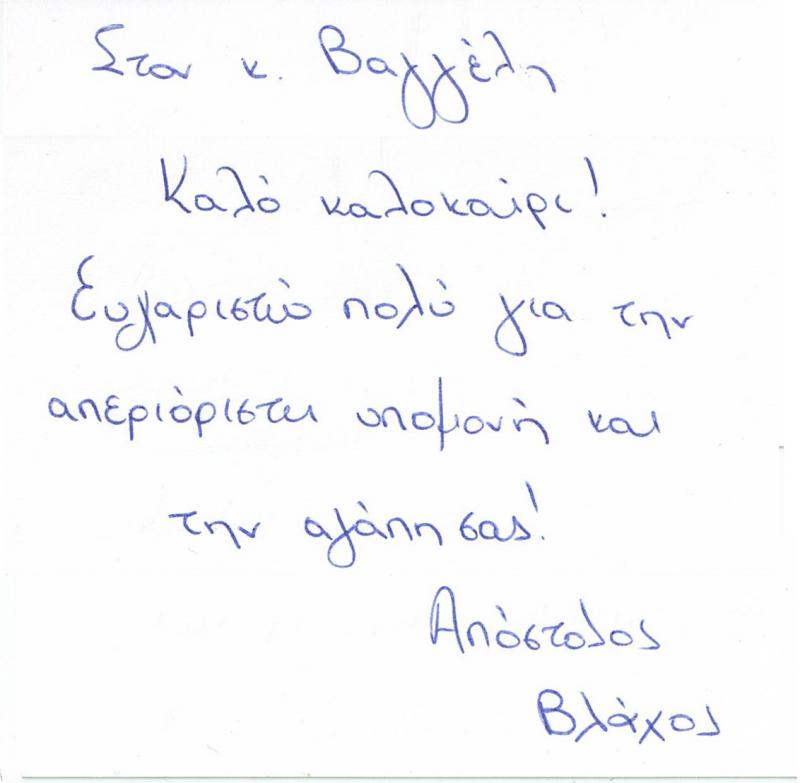 Στον κ. Βαγγέλη
Καλό καλοκαίρι!
Ευχαριστώ πολύ για την
απεριόριστη υπομονή και
την αγάπη σας!
Απόστολος
Βλάχος